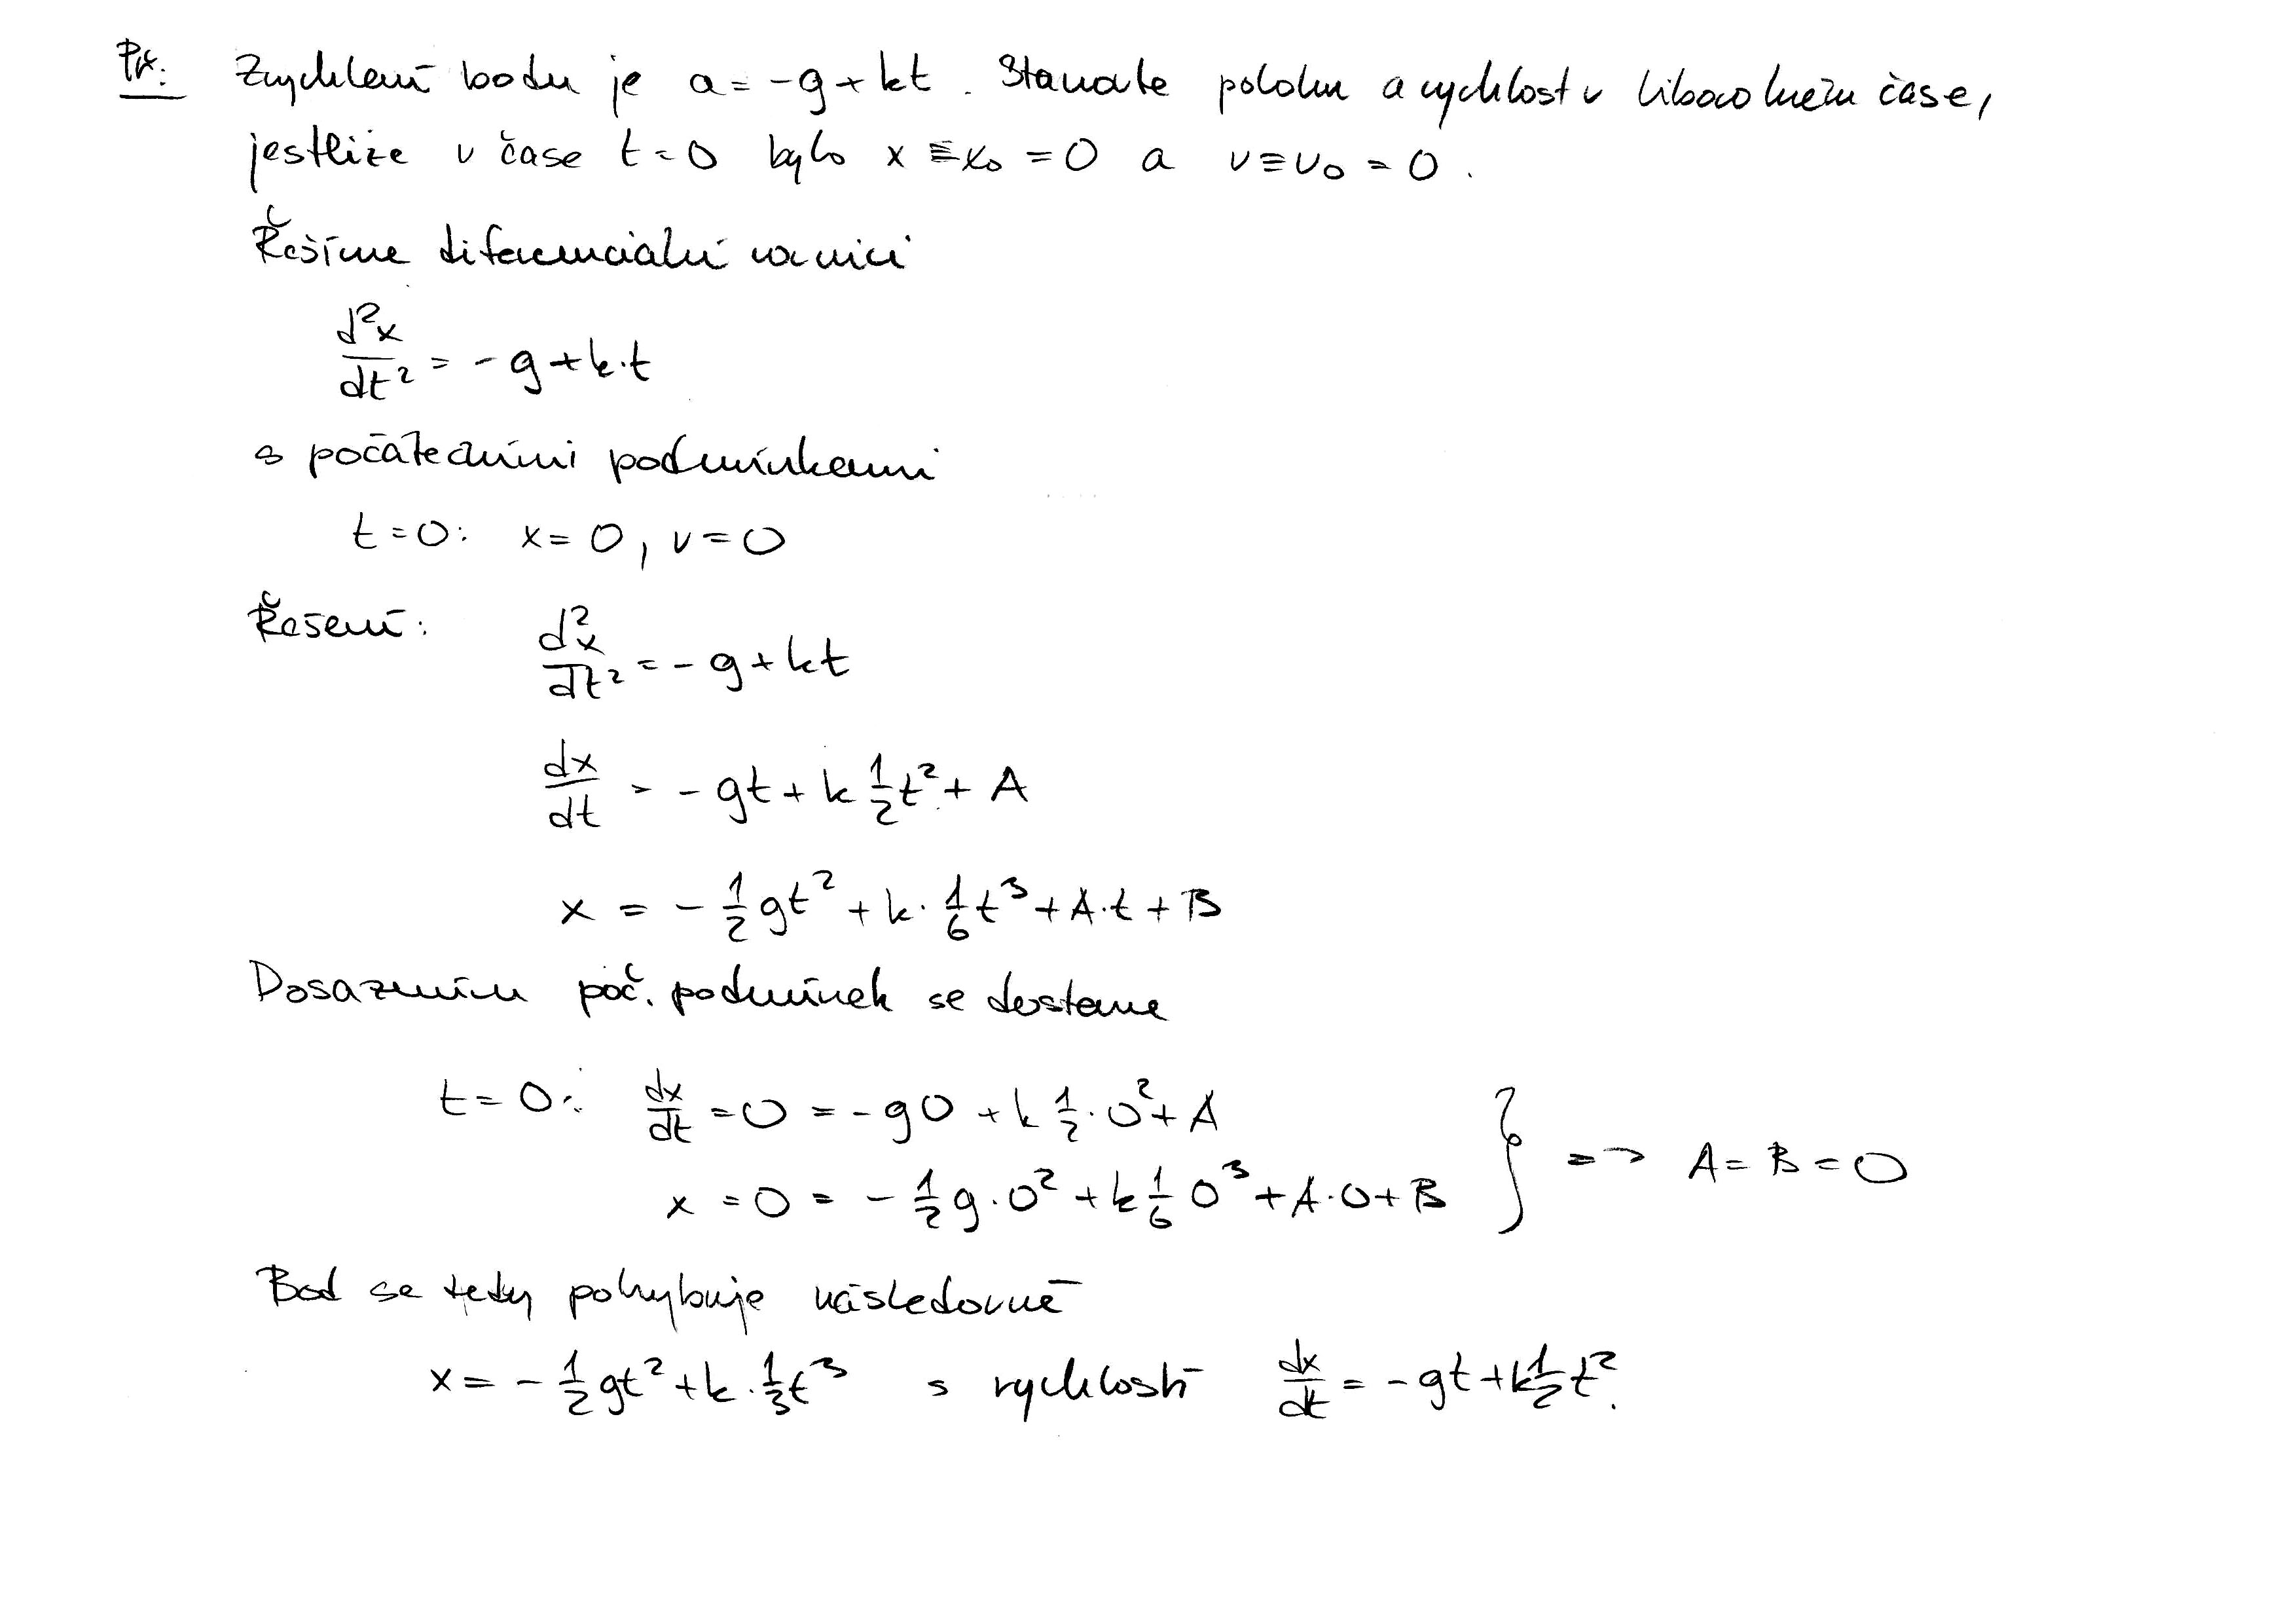 Př: Zrychlení bodu je a = -g + kt. Stanovte polohu a rychlost v libovolném čase,
jestliže v čase t = 0 bylo x ≡ x₀ = 0 a v ≡ v₀ = 0.
Řešíme diferenciální rovnici
d²x/dt² = -g + k·t
s počátečními podmínkami
t = 0: x = 0, v = 0
Řešení: d²x/dt² = -g + kt
dx/dt = -gt + k ½ t² + A
x = -½ gt² + k · ⅙ t³ + A·t + B
Dosazením poč. podmínek se dostane
t = 0: dx/dt = 0 = -g0 + k ½ · 0² + A
x = 0 = -½ g · 0² + k ⅙ 0³ + A · 0 + B } => A = B = 0
Bod se tedy pohybuje následovně
x = -½ gt² + k · ⅓ t³ s rychlostí dx/dt = -gt + k ½ t².